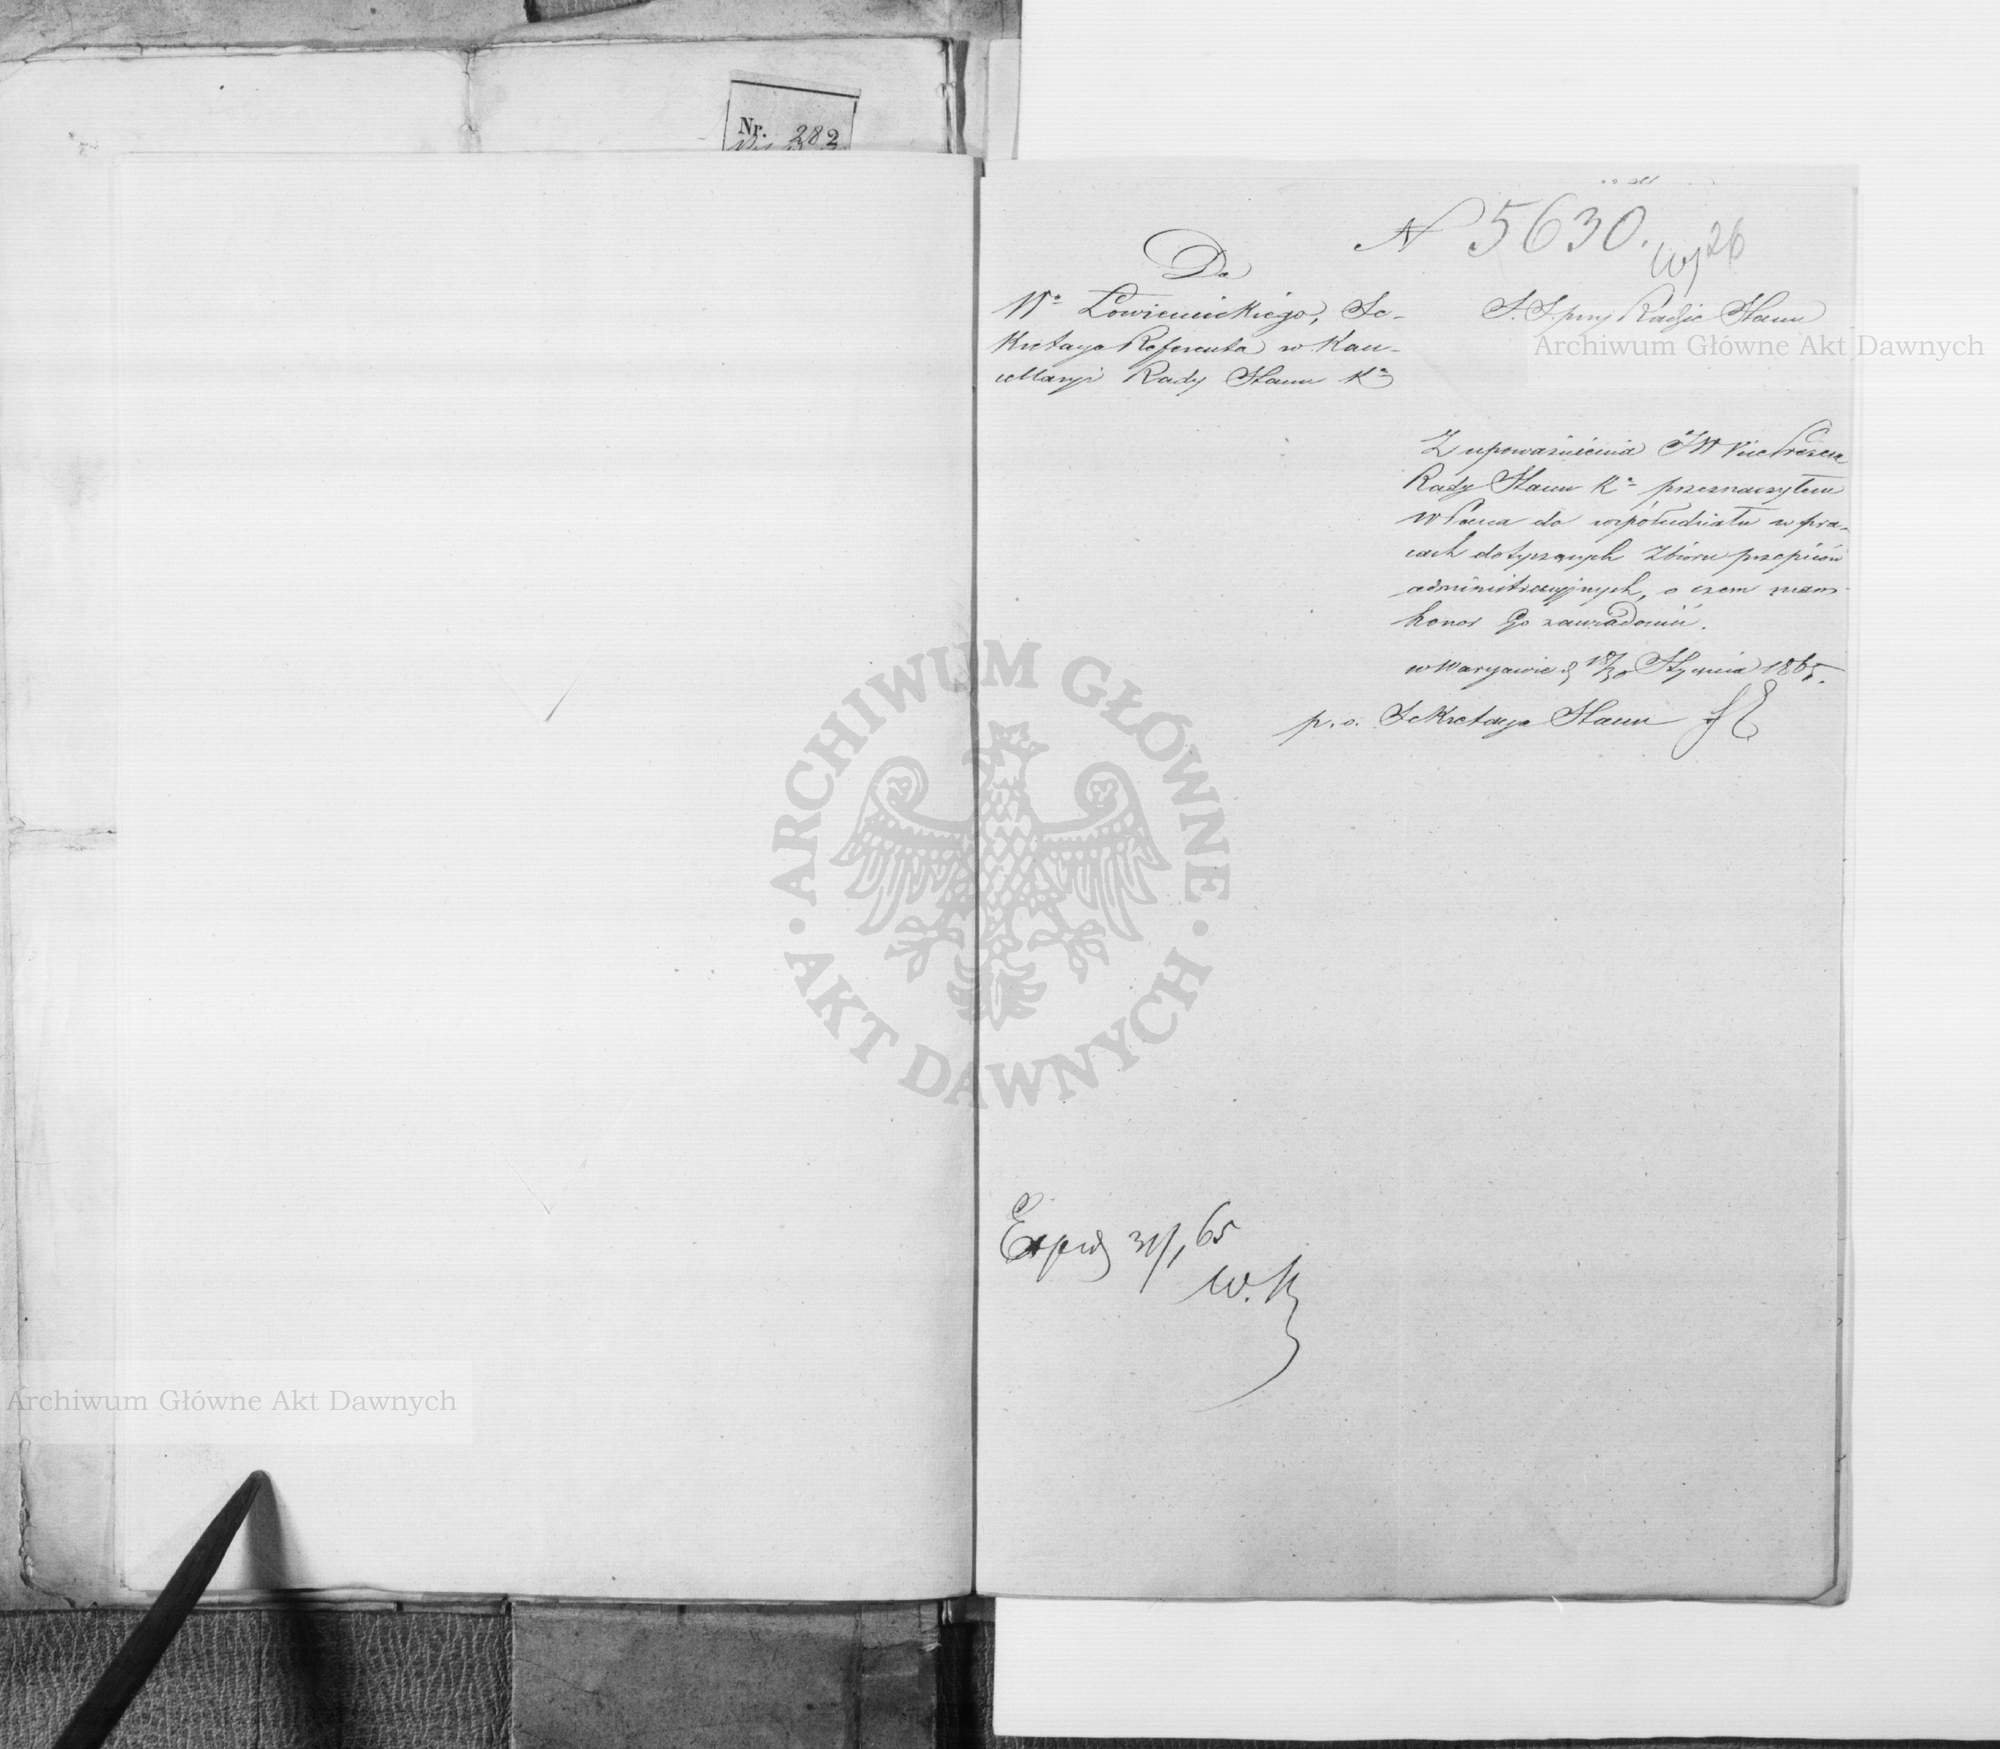 Nr. 282
N 5630.
26
Do
Wo Łowienieckiego, Se-
kretarza Referenta w Kan-
cellaryi Rady Stanu Ka
S. S. przy Radzie Stanu
Archiwum Główne Akt Dawnych
Z upoważnienia JW Vice Prezesa
Rady Stanu Ka przeznaczyłem
WPana do współudziału w pra-
cach dotyczących Zbioru przepisów
administracyjnych, o czem mam
honor Go zawiadomić.
w Warszawie d 18/30 Stycznia 1865.
p. o. Sekretarza Stanu
ARCHIWUM GŁÓWNE
AKT DAWNYCH
Exped 31/1 65
W. K
Archiwum Główne Akt Dawnych